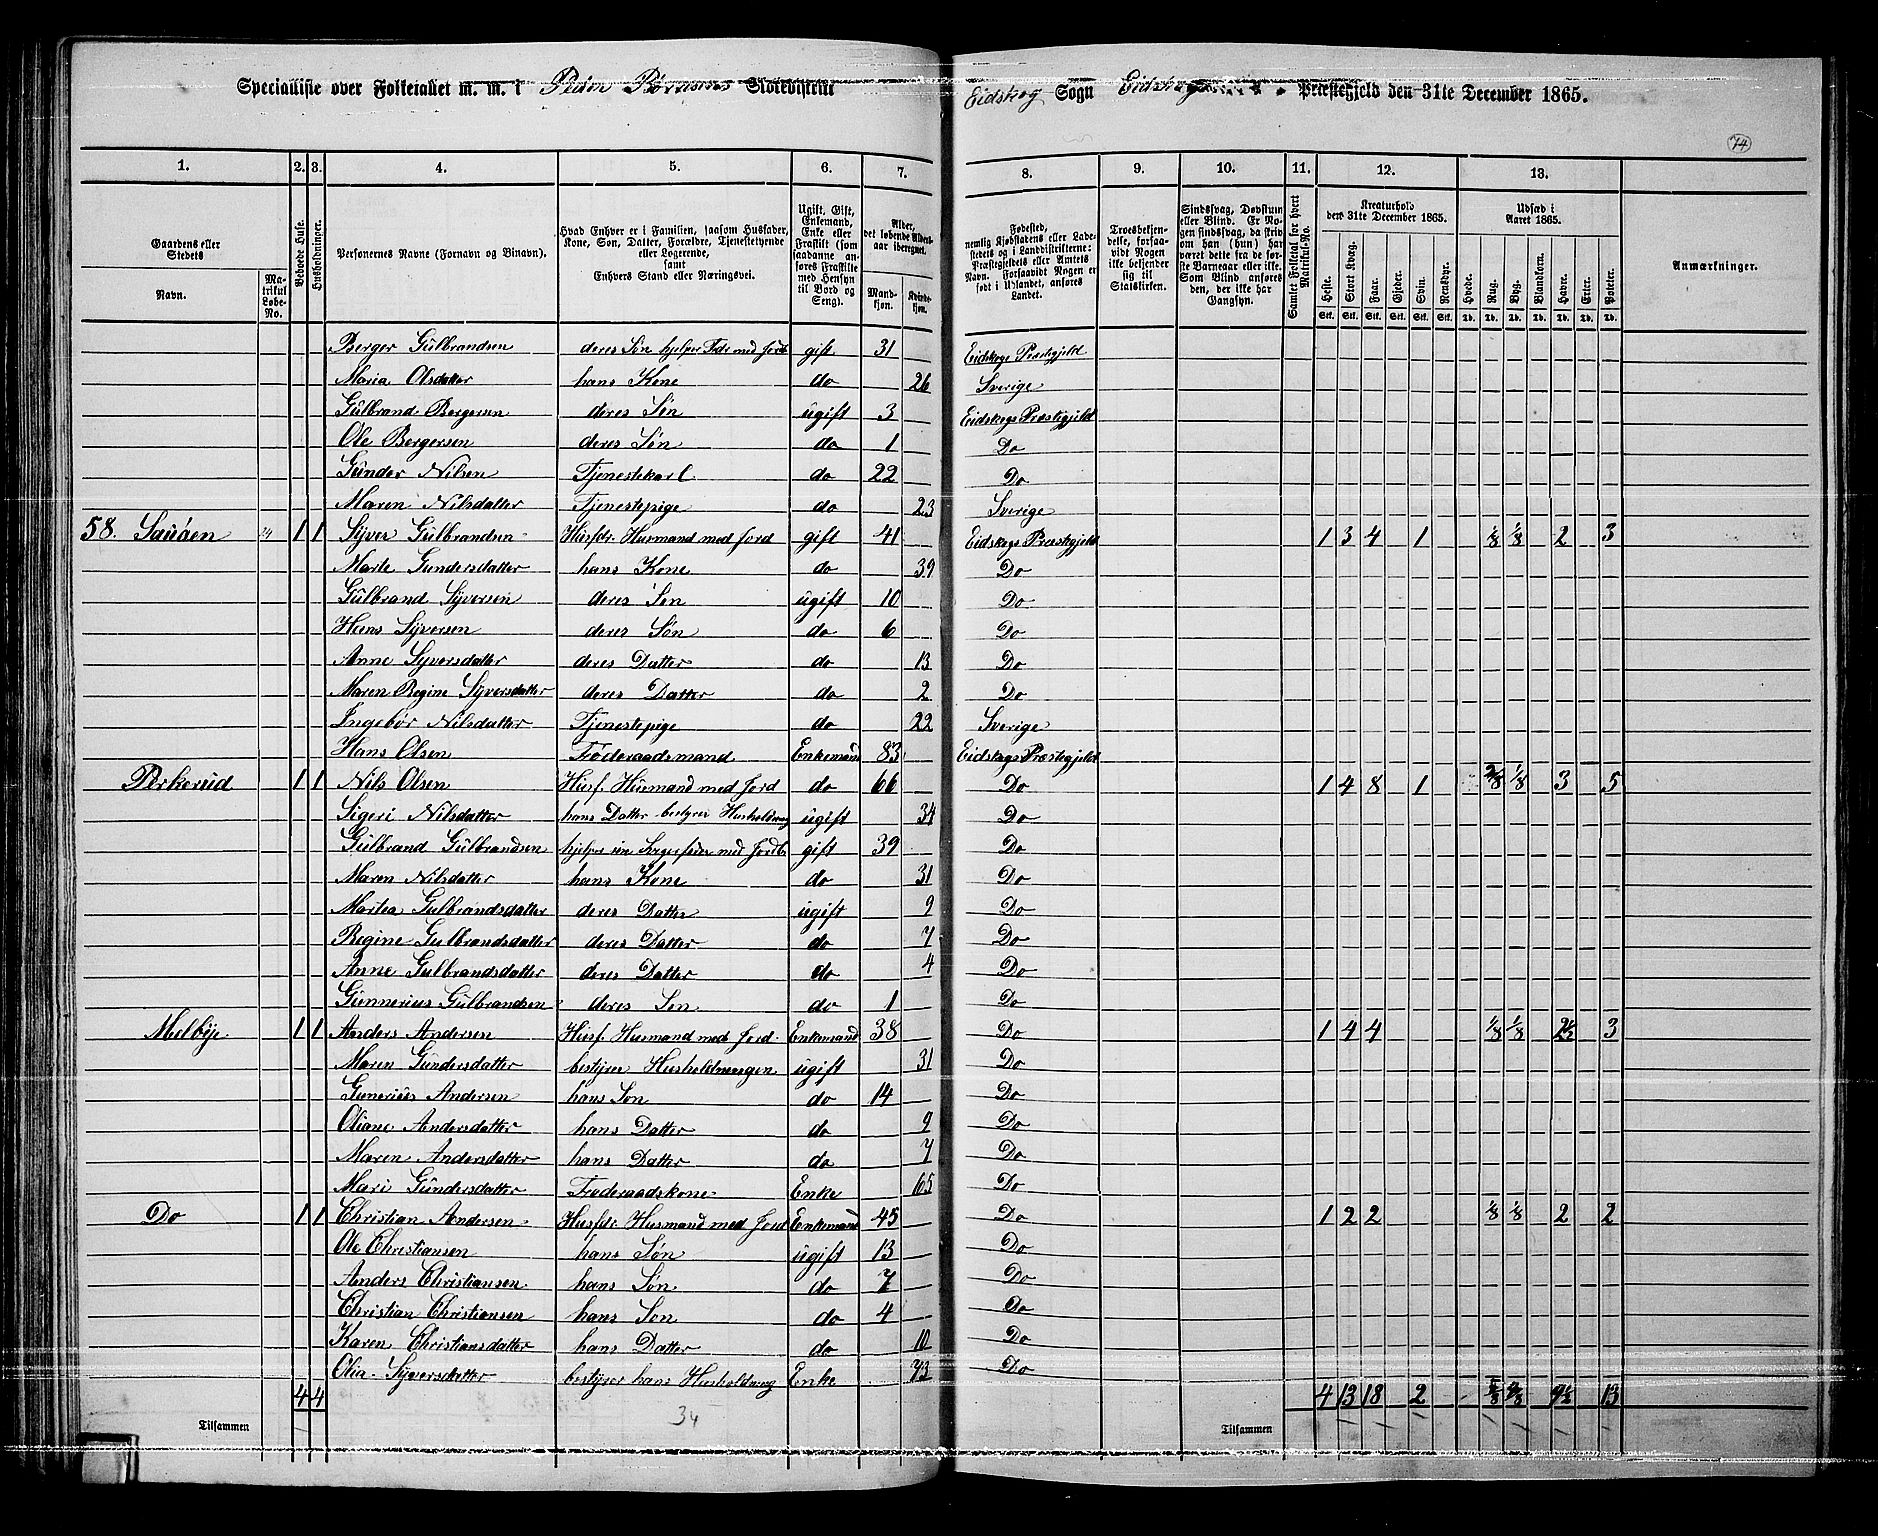 Specialliste over Folketallet m. m. i Skoledistrikt Eidskog Sogn Præstegjeld den 31te December 1865.
74
1. 2. 3. 4. 5. 6. 7. 8. 9. 10. 11. 12. 13.
Gaardens eller Stedets
Navn.
Matrikul Løbe-No.
Beboede Huse.
Husholdninger.
Personernes Navne (Fornavn og Binavn).
Hvad Enhver er i Familien, saasom Husfader, Kone, Søn, Datter, Forældre, Tjenestetyende eller Logerende, samt Enhvers Stand eller Næringsvei.
Ugift, Gift, Enkemand, Enke eller Fraskilt (som saadanne anføres Fraskilte med Hensyn til Bord og Seng).
Alder, det løbende Aldersaar iberegnet.
Mandkjøn.
Kvindekjøn.
Fødested, nemlig Kjøbstadens eller Ladestedets og i Landdistrikterne: Præstegjeldets eller Amtets Navn. Forsaavidt Nogen er født i Udlandet, anføres Landet.
Troesbekjendelse, forsaavidt Nogen ikke bekjender sig til Statskirken.
Sindssvag, Døvstum eller Blind. Er Nogen sindssvag, da skrives om han (hun) har været dette fra de første Barneaar eller ikke. Som Blind anføres den, der ikke har Gangsyn.
Samlet Folketal for hvert Matrikul-No.
Kreaturhold den 31te December 1865.
Heste. Stort Kvæg. Faar. Gjeder. Svin. Rensdyr.
Udsæd i Aaret 1865.
Hvede. Rug. Byg. Blandkorn. Havre. Erter. Poteter.
Anmærkninger.
Stk. Stk. Stk. Stk. Stk. Stk. Td. Td. Td. Td. Td. Td. Td.
Berger Gulbrandsen deres Søn hjelper Fader med Jordb gift 31 Eidskogs Præstegjeld
Maria Olsdatter hans Kone do 26 Sverige
Gulbrand Bergersen deres Søn ugift 3 Eidskogs Præstegjeld
Ole Bergersen deres Søn do 1 Do
Gunder Nilsen Tjenestekarl do 22 Do
Maren Nilsdatter Tjenestepige do 23 Sverige
58. 1 1 Syver Gulbrandsen Husfdr. Husmand med Jord gift 41 Eidskogs Præstegjeld 1 3 4 1 1/8 1/8 2 3
Marte Gundersdatter hans Kone do 39 Do
Gulbrand Syversen deres Søn ugift 10 Do
Hans Syversen deres Søn do 6 Do
Anne Syversdatter deres Datter do 13 Do
Maren Regine Syversdatter deres Datter do 2 Do
Ingebor Nilsdatter Tjenestepige do 22 Sverige
Hans Olsen Føderaadsmand Enkemand 83 Eidskogs Præstegjeld
Perkerud 1 1 Nils Olsen Husf. Husmand med Jord do 66 Do 1 4 8 1 2/8 1/8 3 5
Sigeri Nilsdatter hans Datter bestyrer Husholdning ugift 34 Do
Gulbrand Gulbrandsen hjelper sin Svigerfader med Jordb gift 39 Do
Maren Nilsdatter hans Kone do 31 Do
Martea Gulbrandsdatter deres Datter ugift 9 Do
Regine Gulbrandsdatter deres Datter do 7 Do
Anne Gulbrandsdatter deres Datter do 4 Do
Gunnerius Gulbrandsen deres Søn do 1 Do
Melbye 1 1 Anders Andersen Husf. Husmand med Jord. Enkemand 38 Do 1 4 4 1/8 1/8 2½ 3
Maren Gundersdatter bestyrer Husholdningen ugift 31 Do
Gunerius Andersen hans Søn do 14 Do
Oliane Andersdatter hans Datter do 9 Do
Maren Andersdatter hans Datter do 7 Do
Mari Gundersdatter Føderaadskone Enke 65 Do
Do 1 1 Christian Andersen Husfdr. Husmand med Jord Enkemand 45 Do 1 2 2 1/8 1/8 2 2
Ole Christiansen hans Søn ugift 13 Do
Anders Christiansen hans Søn do 7 Do
Christian Christiansen hans Søn do 4 Do
Karen Christiansdatter hans Datter do 10 Do
Olia Syversdatter bestyrer hans Husholdning Enke 73 Do
4 4 4 13 18 2 5/8 4/8 9½ 13
Tilsammen 34 Tilsammen